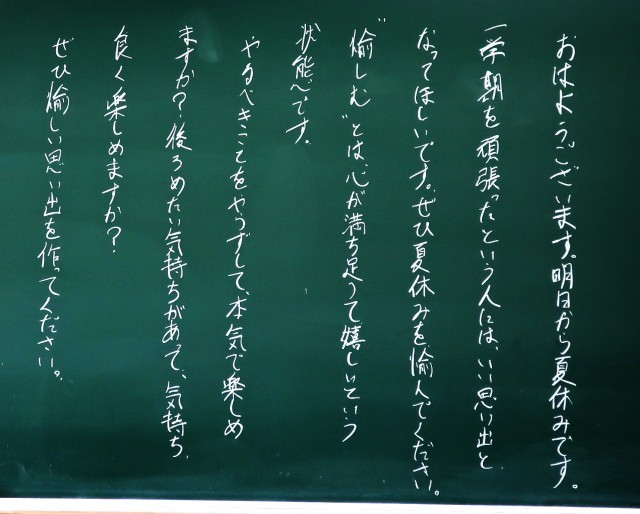 おはようございます。明日から夏休みです。
一学期を頑張ったという人には、いい思い出と
なってほしいです。ぜひ夏休みを愉んでください。
"愉しむ"とは、心が満ち足りて嬉しいという
状態です。
やるべきことをやらずして、本気で楽しめ
ますか?後ろめたい気持ちがあって、気持ち
良く楽しめますか?
ぜひ愉しい思い出を作ってください。